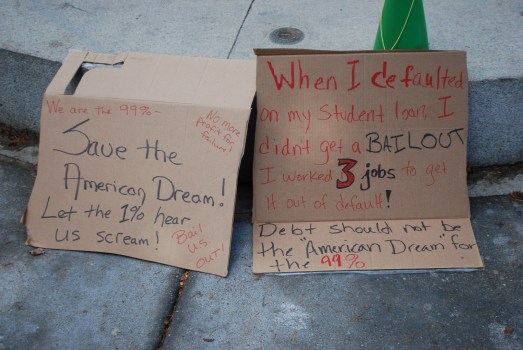 We are the 99%~
No more
profits for
failure!
Save the
American Dream!
Let the 1% hear
us scream!
Bail
us
out!
When I defaulted
on my Student loan I
didn't get a BAILOUT
I worked 3 jobs to get
it out of default!
Debt should not be
the "American Dream" for
the 99%